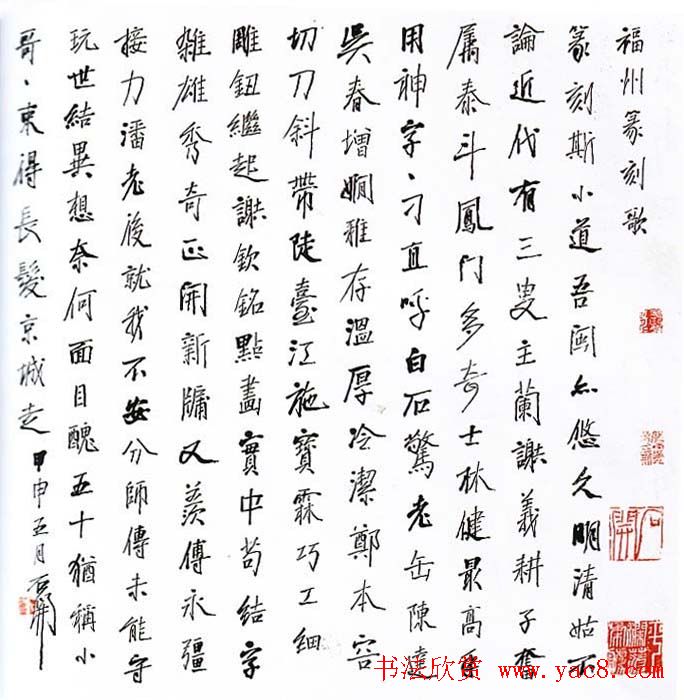 福州篆刻歌
篆刻斯小道吾閩亦悠久明清姑不
論近代有三叟主蘭謝義耕子奮
屬泰斗鳳門多奇士林健最高
用神字、刁直呼白石驚老缶陳達
吳春增嫻雅存溫厚冷潔鄭本容
切刀斜帶陡臺江施寶霖巧工細
雕鈕繼起謝欽銘點畫實中苟結字
雜雄秀奇正開新牖又羨傳永彊
接力潘老後就我不安分師傳未能守
玩世結異想奈何面目醜五十猶稱小
哥、束得長髮京城走甲申五月石開
石開
书法欣赏 www.yac8.com